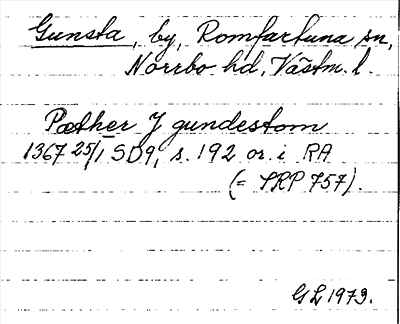 Gunsta, by, Romfartuna sn,
Norrbo hd, Västm. l.
Pæther J gundestom
1367 25/1 SD9, s. 192 or. i RA
(= SRP 757).
GL 1973.